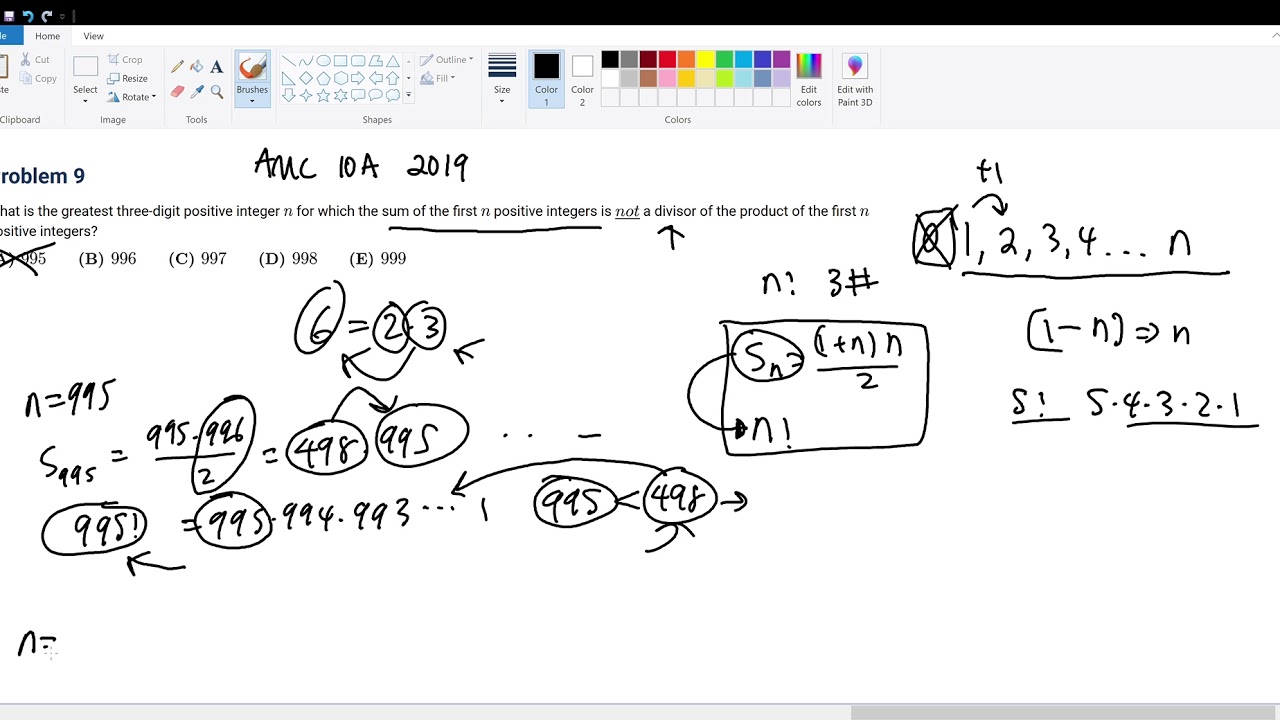 Home View
Cut
Copy
Clipboard
Select
Crop
Resize
Rotate
Image
A
Tools
Brushes
Shapes
Outline
Fill
Size
Color 1
Color 2
Colors
Edit colors
Edit with Paint 3D
roblem 9
AMC 10A 2019
hat is the greatest three-digit positive integer n for which the sum of the first n positive integers is not a divisor of the product of the first n
ositive integers?
A) 995 (B) 996 (C) 997 (D) 998 (E) 999
+1
0 1, 2, 3, 4 ... n
n! 3#
6 = 2·3
Sn = (1+n)n / 2
n!
(1-n) => n
5! 5·4·3·2·1
n=995
S995 = 995·996 / 2 = 498 995 .. _
995! = 995·994·993 ... 1
995 < 498 →
n=